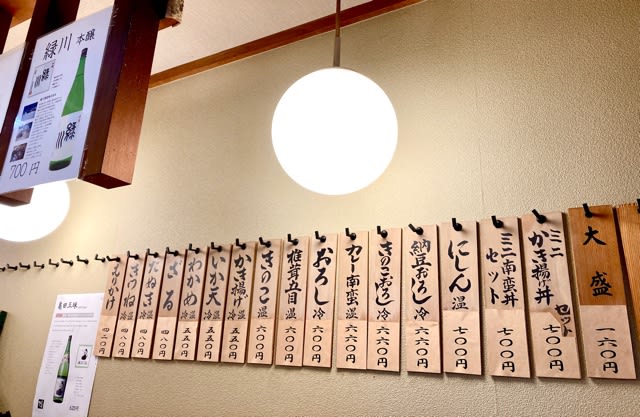 緑川 本醸
緑川
700円
もりかけ
四二〇円
きつね
四八〇円
たぬき
四八〇円
ざる
四八〇円
わかめ
五五〇円
いか天
五五〇円
かき揚げ
五五〇円
きのこ 温
六〇〇円
椎茸五目 温
六〇〇円
おろし 冷
六〇〇円
カレー南蛮 温
六〇〇円
きのこおろし 冷
六六〇円
納豆おろし 冷
六六〇円
にしん 温
七〇〇円
ミニ南蛮丼
セット
七〇〇円
ミニ
かき揚げ丼
セット
七〇〇円
大盛
一六〇円